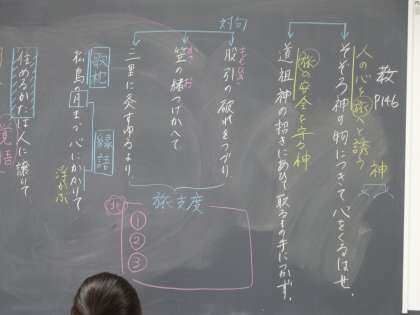 教 P146
神
人の心を旅へと誘う
そぞろ神の物につきて心をくるはせ、
対句
旅の安全を守る神
道祖神の招きにあひて取るもの手につかず、
ももひき
股引の破れをつづり、
かさ
お
笠の緒つけかへて
三里に灸すゆるより、
旅支度
①
②
③
歌枕
縁語
松島の月まづ心にかかりて
住めるかたは人に譲りて
覚悟